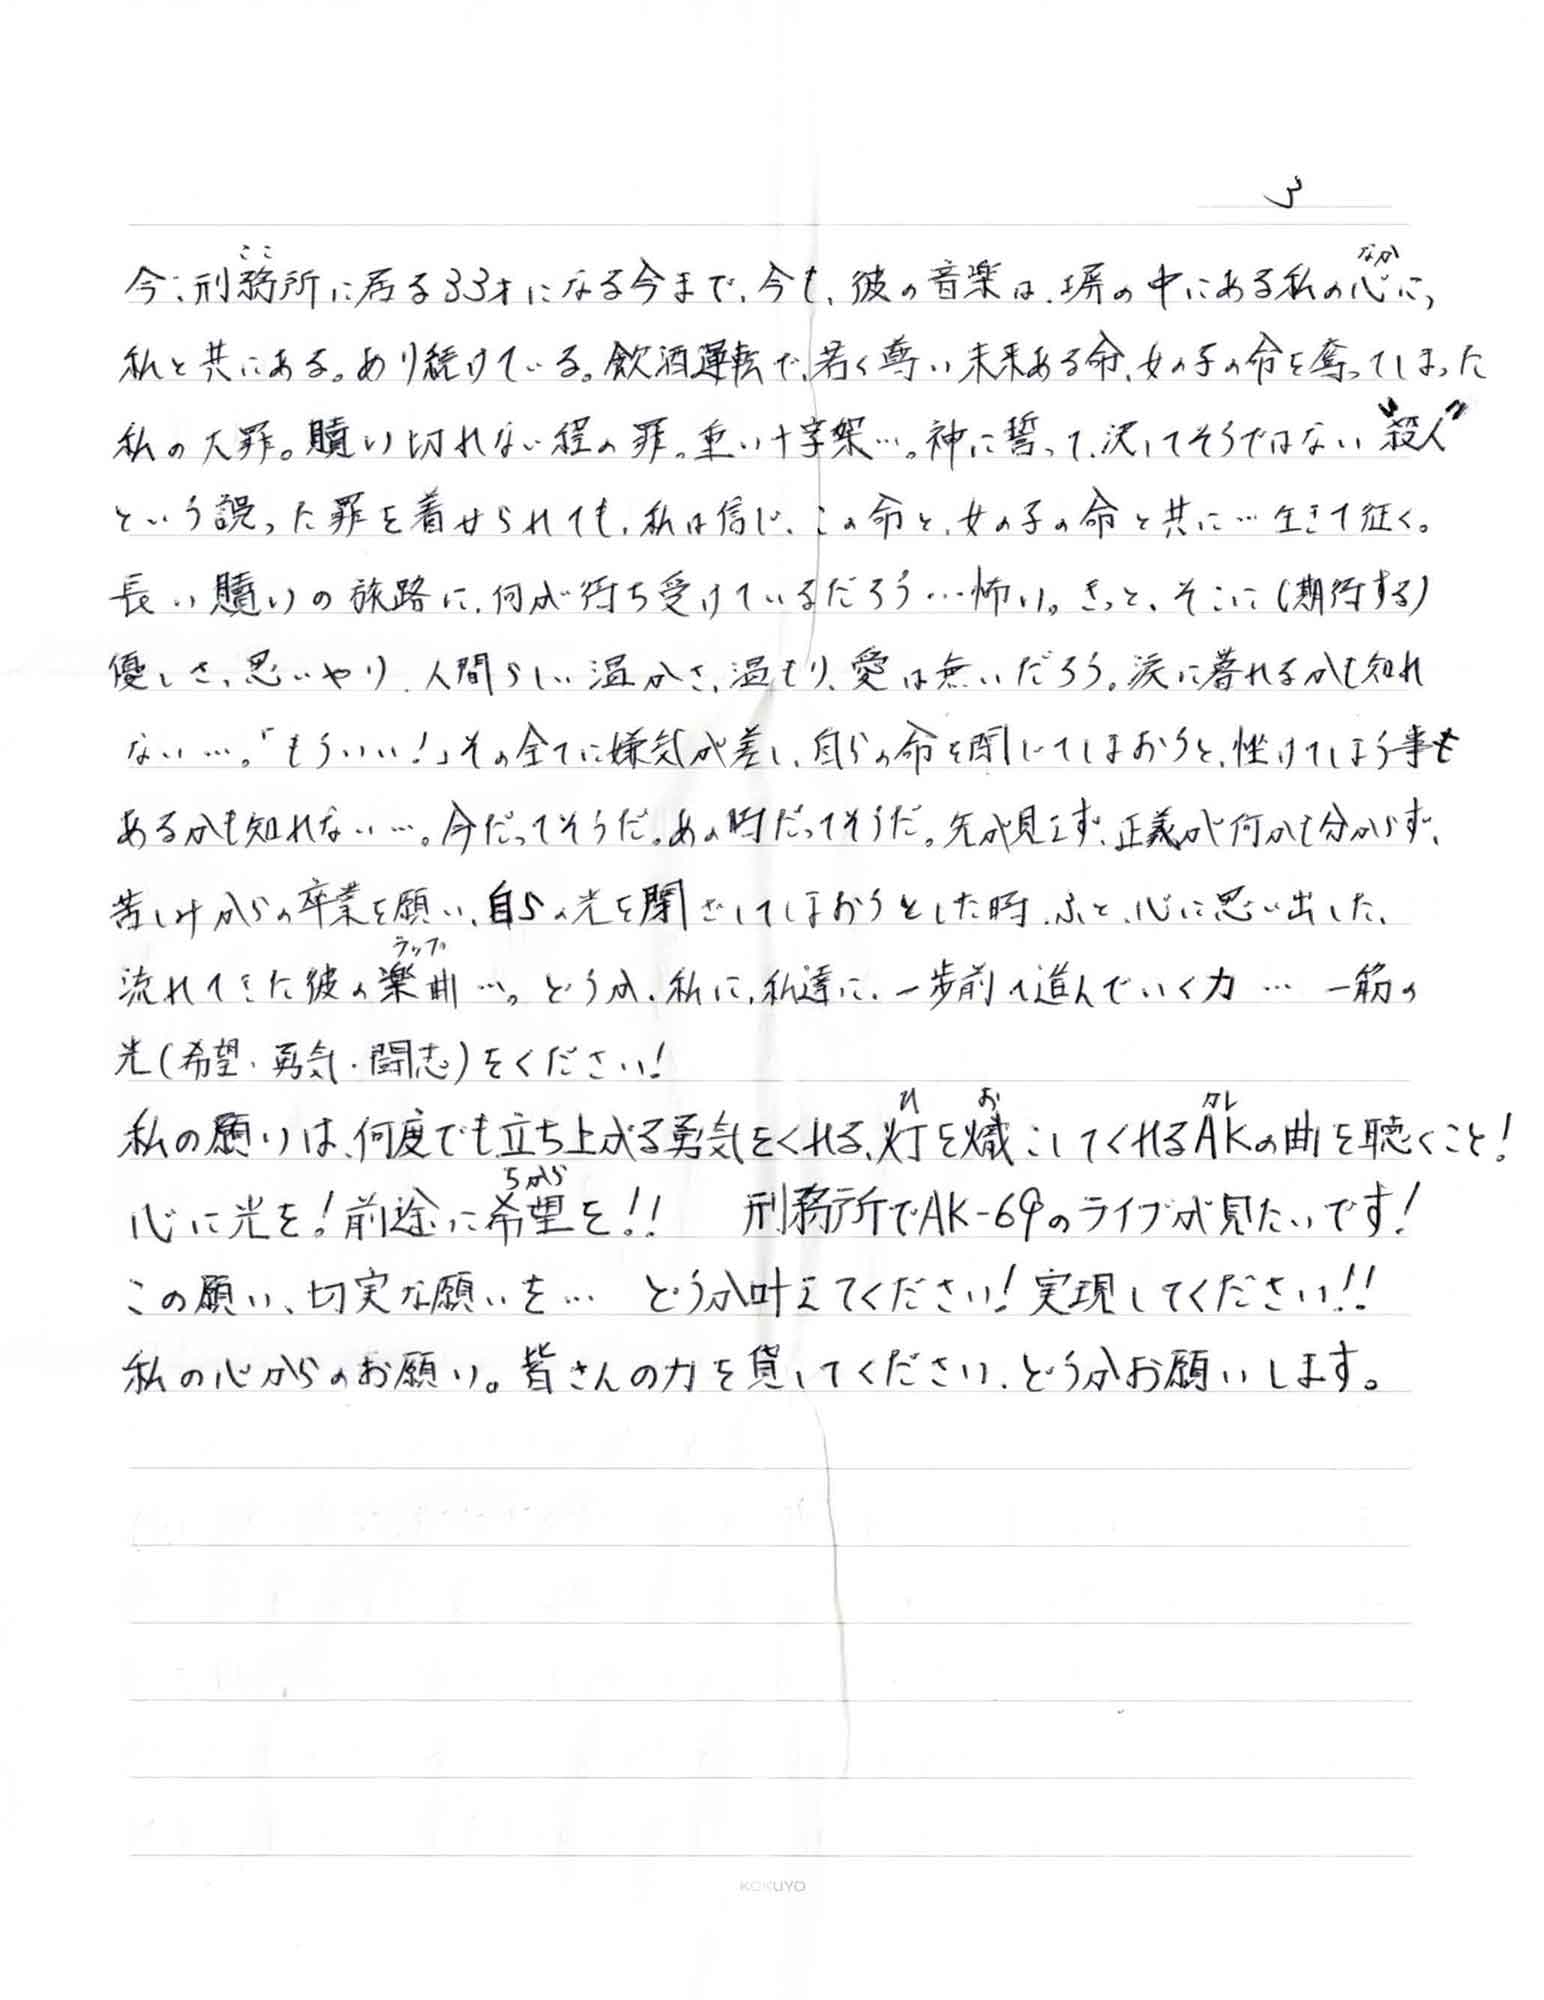 3
ここ
なか
今、刑務所に居る33才になる今まで、今も、彼の音楽は、塀の中にある私の心に、
私と共にある。あり続けている。飲酒運転で、若く尊い未来ある命、女の子の命を奪ってしまった
私の大罪。贖い切れない程の罪。重い十字架…。神に誓って、決してそうではない"殺人"
という誤った罪を着せられても、私は信じ、この命と、女の子の命と共に…生きて征く。
長い贖いの旅路に、何が待ち受けているだろう…怖い。きっと、そこに(期待する)
優しさ、思いやり、人間らしい温かさ、温もり、愛は無いだろう。涙に暮れるかも知れ
ない…。「もういい!」その全てに嫌気が差し、自らの命を閉じてしまおうと、挫けてしまう事も
あるかも知れない…。今だってそうだ。あの時だってそうだ。先が見えず、正義が何かも分からず、
苦しみからの卒業を願い、自らの光を閉ざしてしまおうとした時、ふと、心に思い出した、
ラップ
流れてきた彼の楽曲…。どうか、私に、私達に、一歩前へ進んでいく力… 一筋の
光(希望・勇気・闘志)をください!
ひ お カレ
私の願いは、何度でも立ち上がる勇気をくれる、灯を熾こしてくれるAKの曲を聴くこと!
ちから
心に光を!前途に希望を!! 刑務所でAK-69のライブが見たいです!
この願い、切実な願いを… どうか叶えてください!実現してください!!
私の心からのお願い。皆さんの力を貸してください、どうかお願いします。
KOKUYO